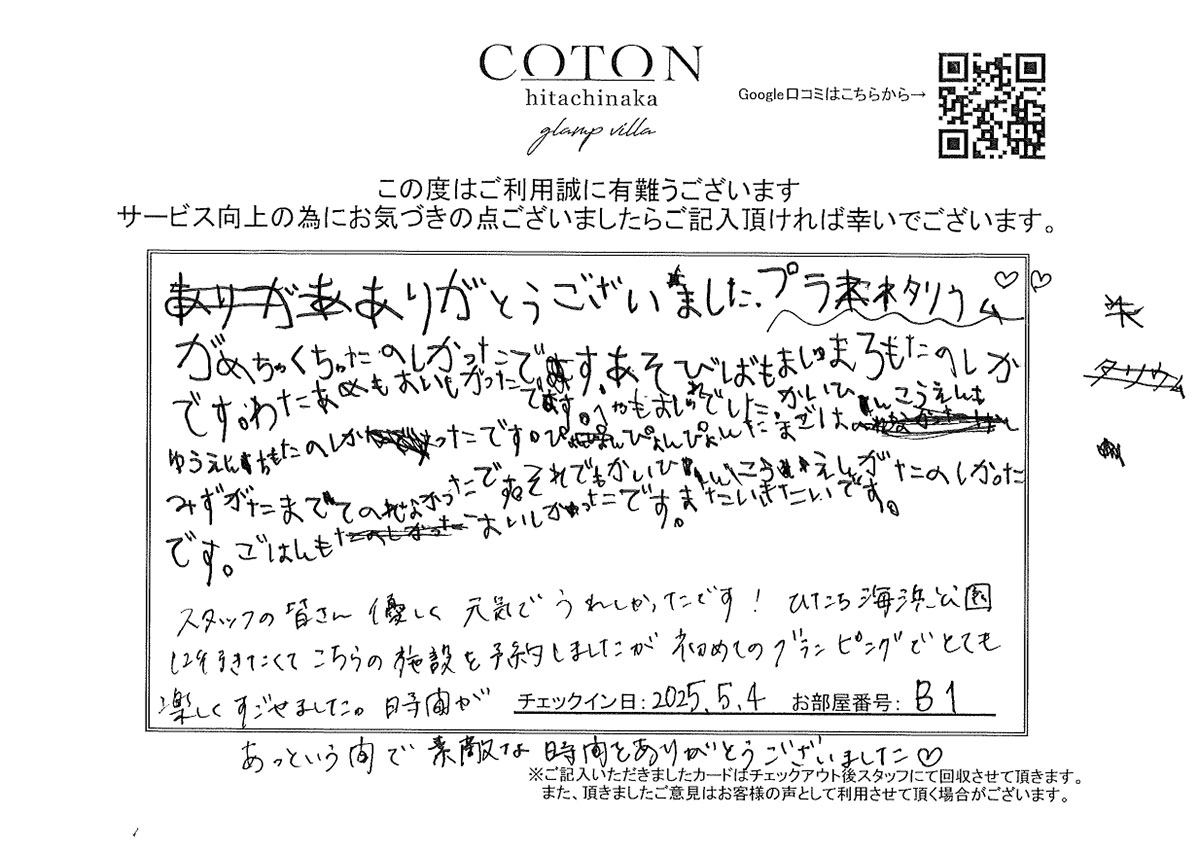 COTON
hitachinaka
glamp villa
Google口コミはこちらから→
この度はご利用誠に有難うございます
サービス向上の為にお気づきの点ございましたらご記入頂ければ幸いでございます。
ありがとうございました。プラネタリウム♡♡
がめちゃくちゃたのしかったです。あそびばもましゅまろもたのしか
です。わたあめもおいしかったです。へやもおしゃれでした。かいひんこうえんも
ゆうえんちもたのしかったです。ぴょんぴょんぴょんたまごはの
みずがたまっててのれなかったですそれでもかいひんこうえんがたのしかった
です。ごはんもおいしかったです。またいきたいです。
スタッフの皆さん 優しく 元気で うれしかったです! ひたち海浜公園
に行きたくて こちらの施設を予約しましたが 初めてのグランピングでとても
楽しくすごせました。時間が
チェックイン日: 2025.5.4 お部屋番号: B1
あっという間で 素敵な 時間をありがとうございました♡
※ご記入いただきましたカードはチェックアウト後スタッフにて回収させて頂きます。
また、頂きましたご意見はお客様の声として利用させて頂く場合がございます。